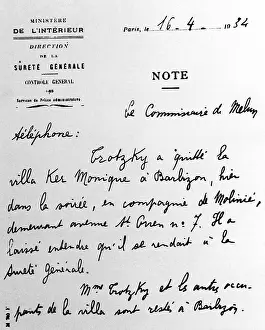 MINISTÈRE
DE L'INTÉRIEUR
DIRECTION
DE LA
SÛRETÉ GÉNÉRALE
CONTRÔLE GENERAL
Services de Police administrative
Paris, le 16-4-1934
NOTE
Le Commissaire de Melun
téléphone:
Trotzky a quitté la
villa Ker Monique à Barbizon, hier
dans la soirée, en compagnie de Molinié,
demeurant avenue St Ouen n° 7. Il a
laissé entendre qu'il se rendait à la
Sureté Générale.
Mme Trotzky et les autres occu-
pants de la villa sont resté à Barbizon.